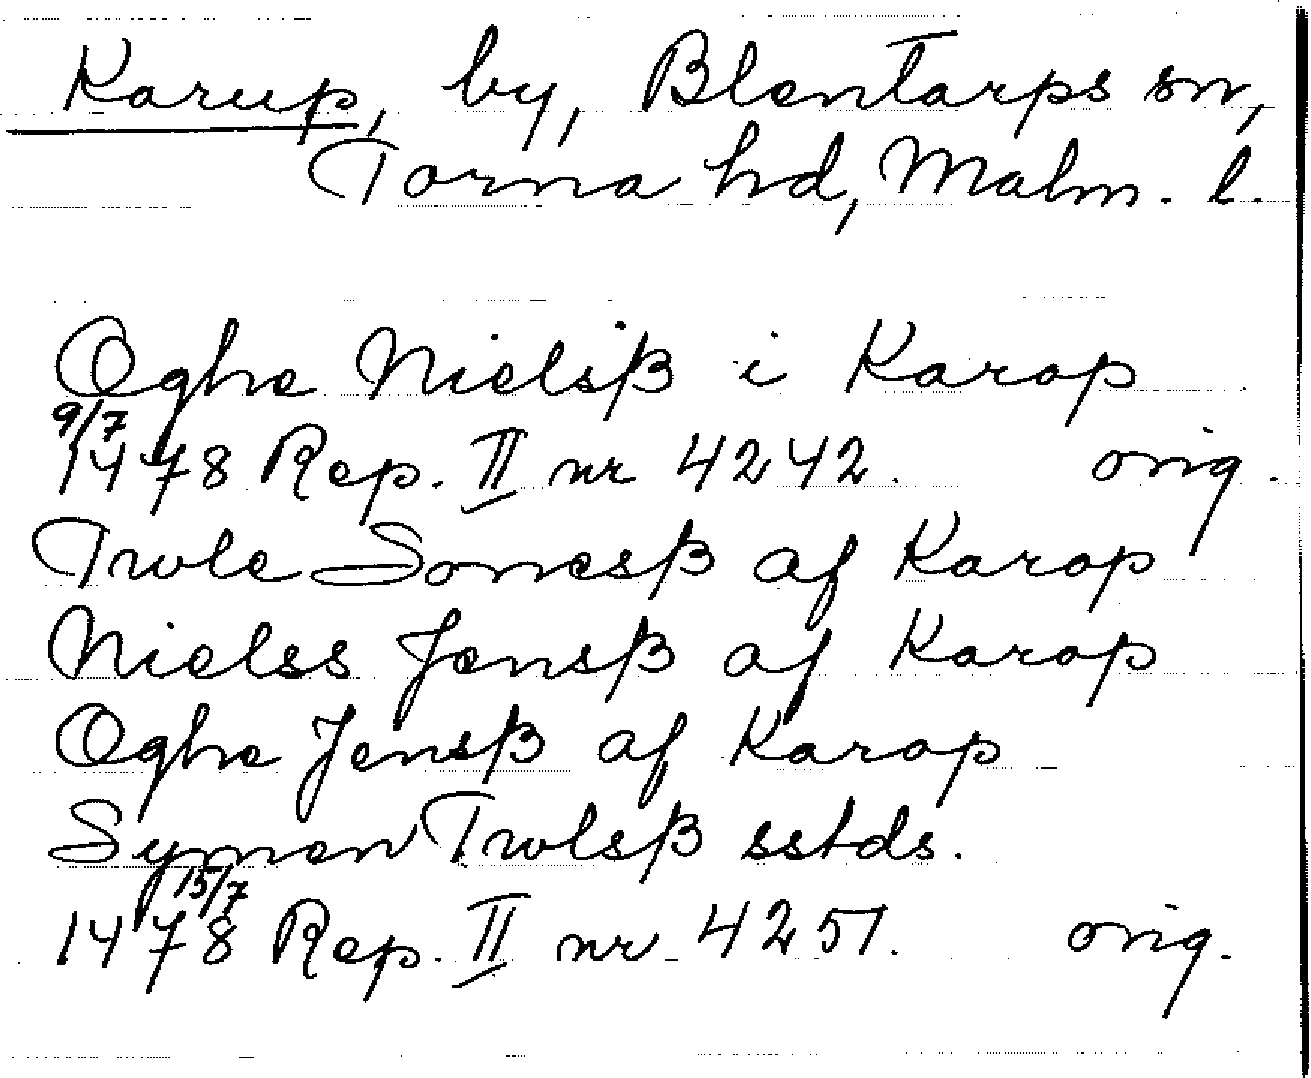 Karup, by, Blentarps sn,
Torna hd, Malm. l.
Oghe Nielsß i Karop
9/7
1478 Rep. II nr 4242. orig.
Trwle Sonesß af Karop
Nielss Jensß af Karop
Oghe Jensß af Karop
Symen Trwlsß sstds.
15/7
1478 Rep. II nr 4251. orig.